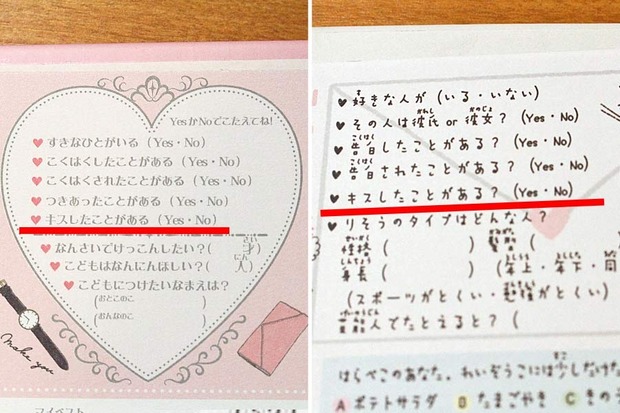 YesかNoでこたえてね!
♥すきなひとがいる (Yes・No)
♥こくはくしたことがある (Yes・No)
♥こくはくされたことがある (Yes・No)
♥つきあったことがある (Yes・No)
♥キスしたことがある (Yes・No)
♥なんさいでけっこんしたい?( 才)
♥こどもはなんにんほしい?( 人)
♥こどもにつけたいなまえは?
(おとこのこ )
(おんなのこ )
make you
マイベスト
♥好きな人が (いる・いない)
♥その人は彼氏 or 彼女? (Yes・No)
♥告白したことがある? (Yes・No)
♥告白されたことがある? (Yes・No)
♥キスしたことがある? (Yes・No)
♥りそうのタイプはどんな人?
性格 ( ) 髪型 (
身長 ( ) (年上・年下・同
(スポーツがとくい・勉強がとくい)
芸能人でたとえると? (
はらぺこのあなた。れいぞうこには少しだけた
A ポテトサラダ B たまごやき C きの